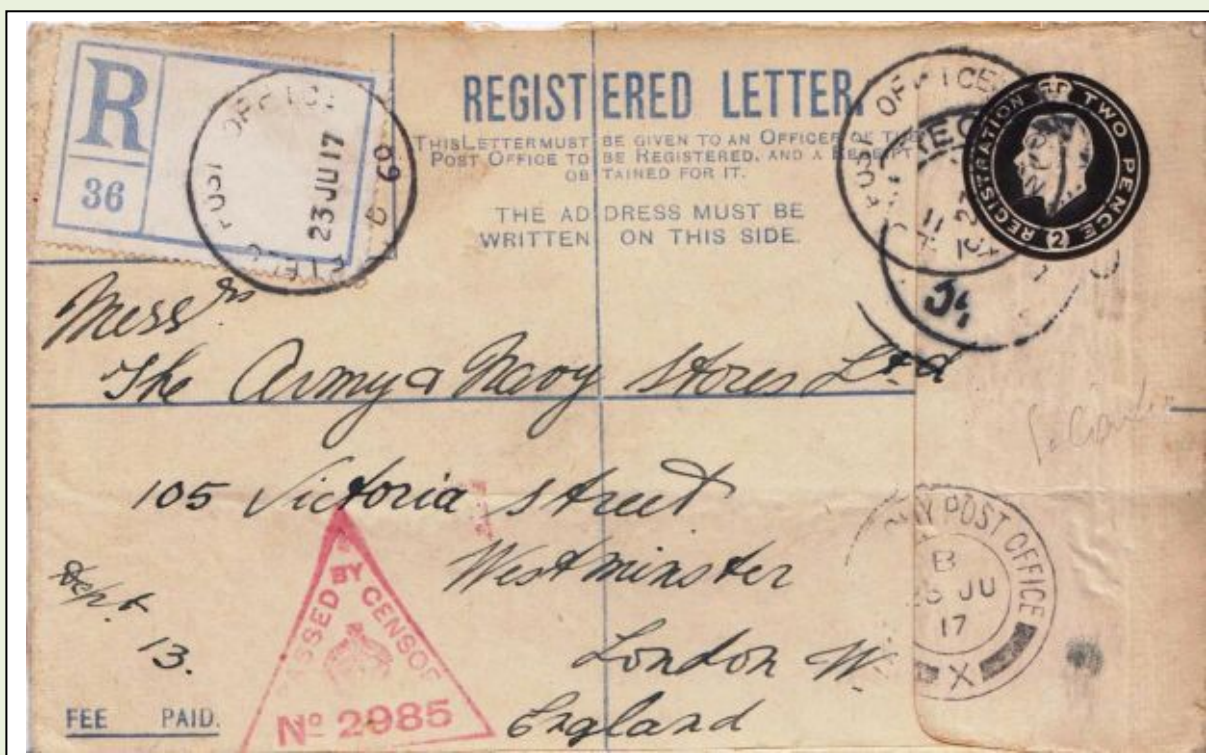 R
36
FIELD POST OFFICE
23 JU 17
D 69
REGISTERED LETTER.
THIS LETTER MUST BE GIVEN TO AN OFFICER OF THE
POST OFFICE TO BE REGISTERED, AND A RECEIPT
OBTAINED FOR IT.
THE ADDRESS MUST BE
WRITTEN ON THIS SIDE.
POST OFFICE
REGISTRATION TWO PENCE (2)
Messrs
The Army & Navy Stores Ltd
105 Victoria Street
Westminster
London W.
England
Dept
13.
PASSED BY CENSOR
No 2985
POST OFFICE
B
JU
17
X
FEE PAID.